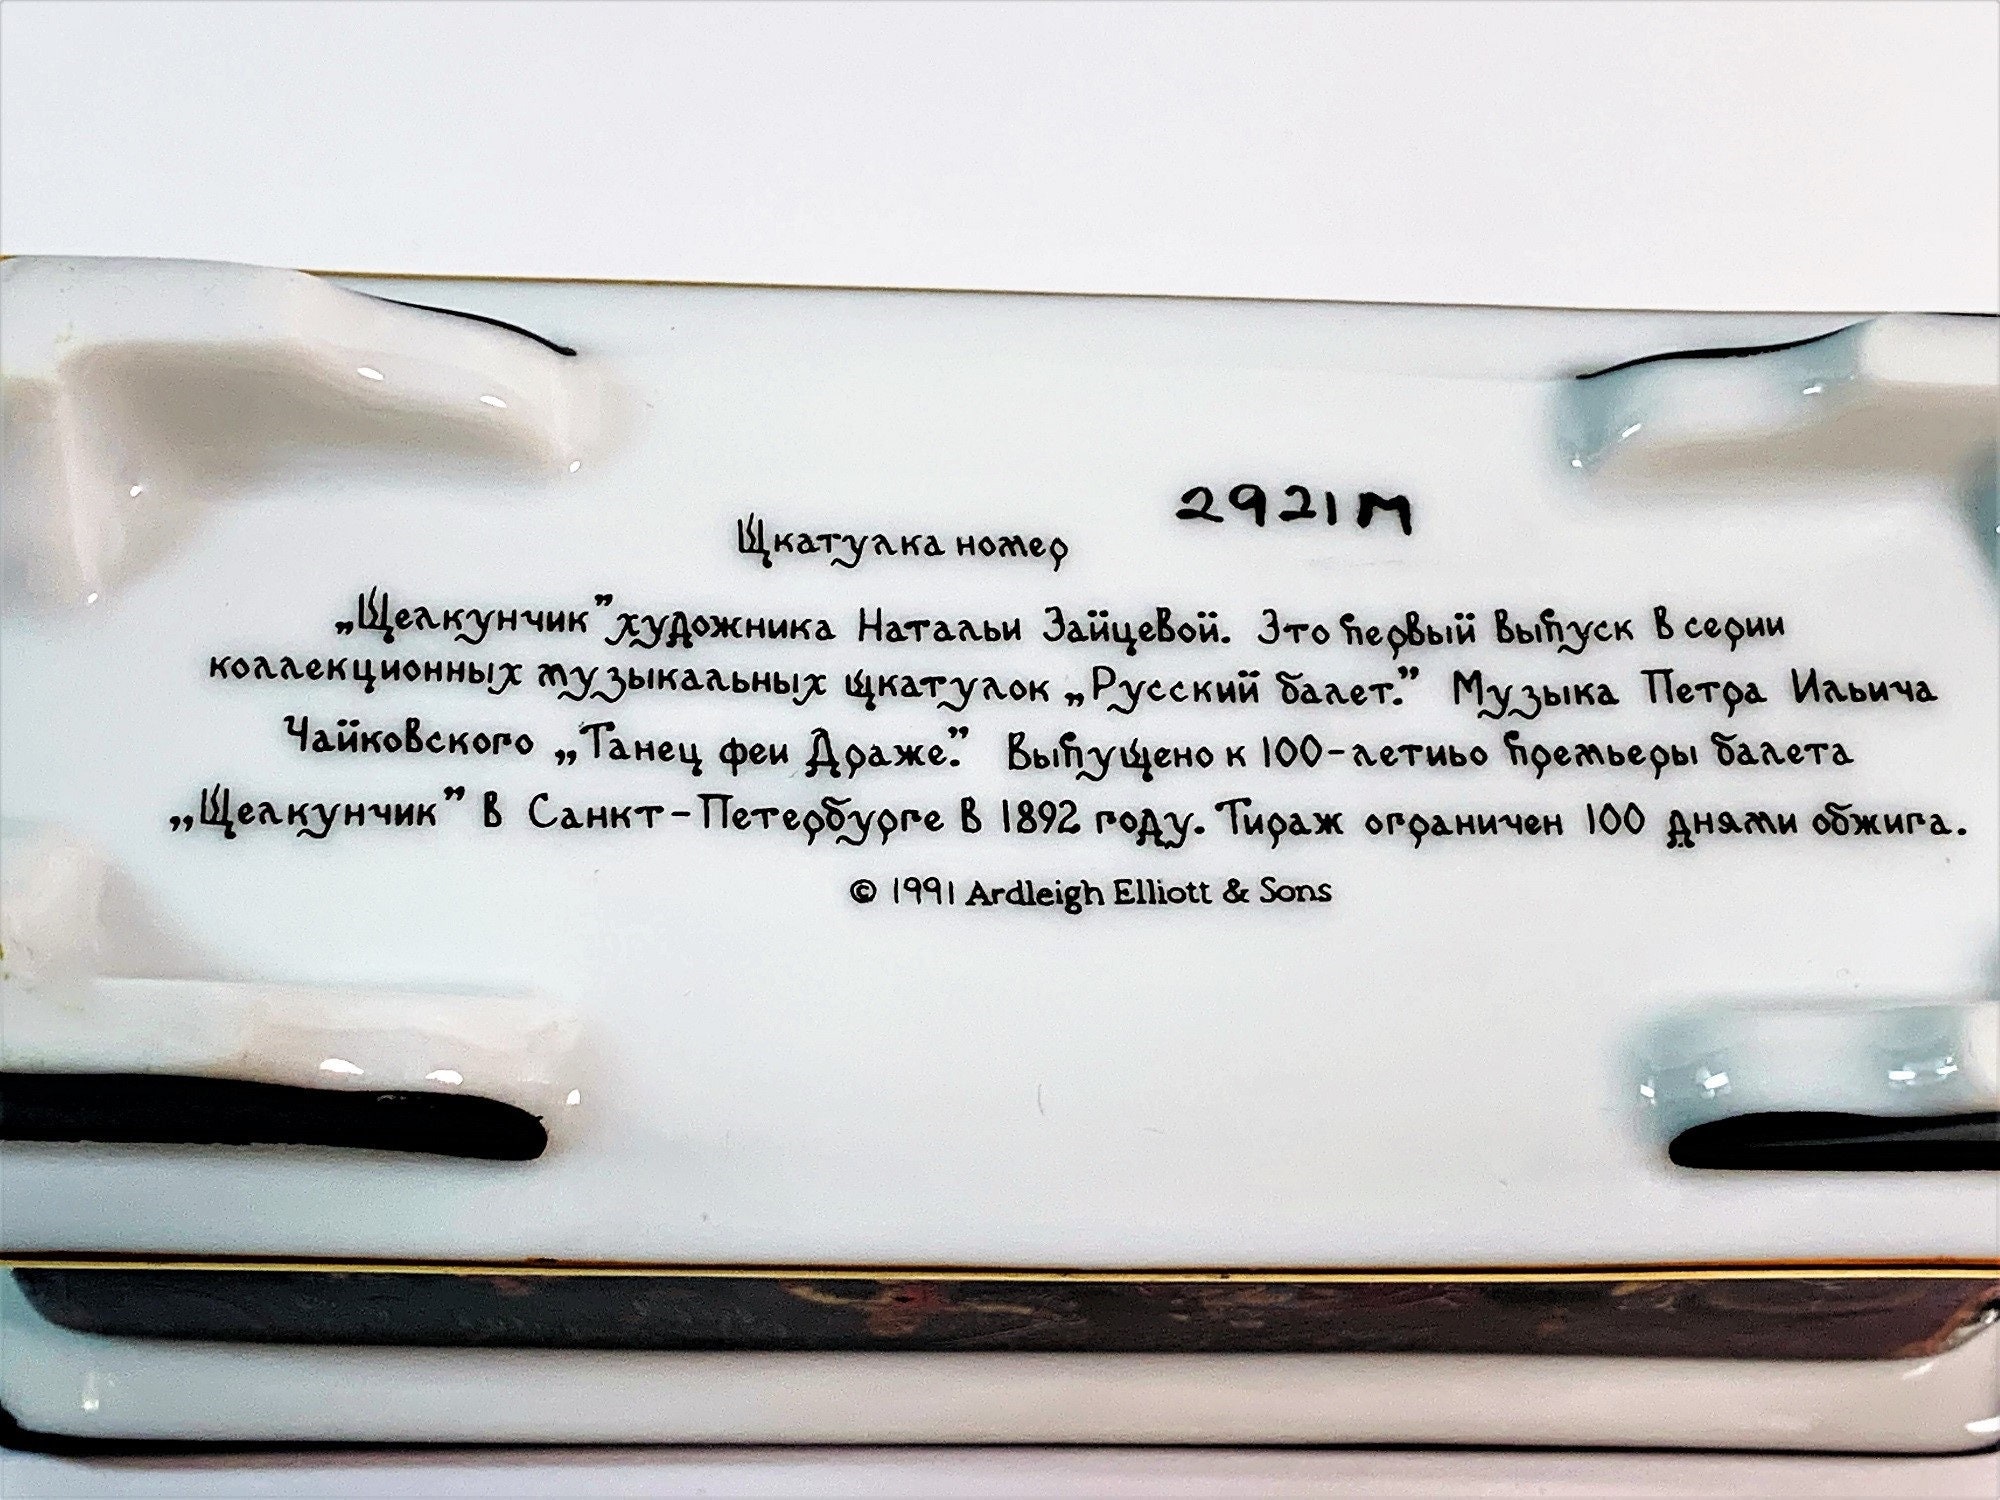 Щкатулка номер 2921M
„Щелкунчик” художника Натальи Зайцевой. Это первый выпуск в серии
коллекционных музыкальных щкатулок „Русский балет.” Музыка Петра Ильича
Чайковского „Танец феи Драже.” Выпущено к 100-летиьо премьеры балета
„Щелкунчик” в Санкт-Петербурге в 1892 году. Тираж ограничен 100 днями обжига.
© 1991 Ardleigh Elliott & Sons